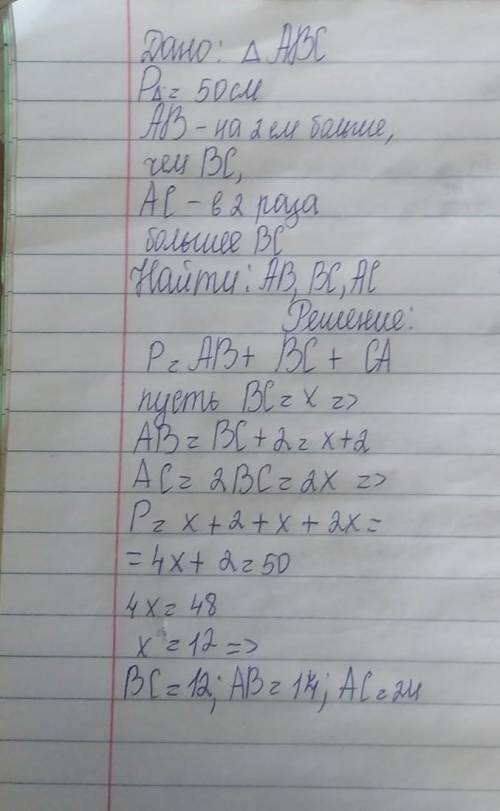 Дано: △ ABC
P△ = 50см
AB - на 2 см больше,
чем BC,
AC - в 2 раза
большее BC
Найти: AB, BC, AC
Решение:
P = AB + BC + CA
пусть BC = x =>
AB = BC + 2 = x + 2
AC = 2BC = 2x =>
P = x + 2 + x + 2x =
= 4x + 2 = 50
4x = 48
x = 12 =>
BC = 12; AB = 14; AC = 24